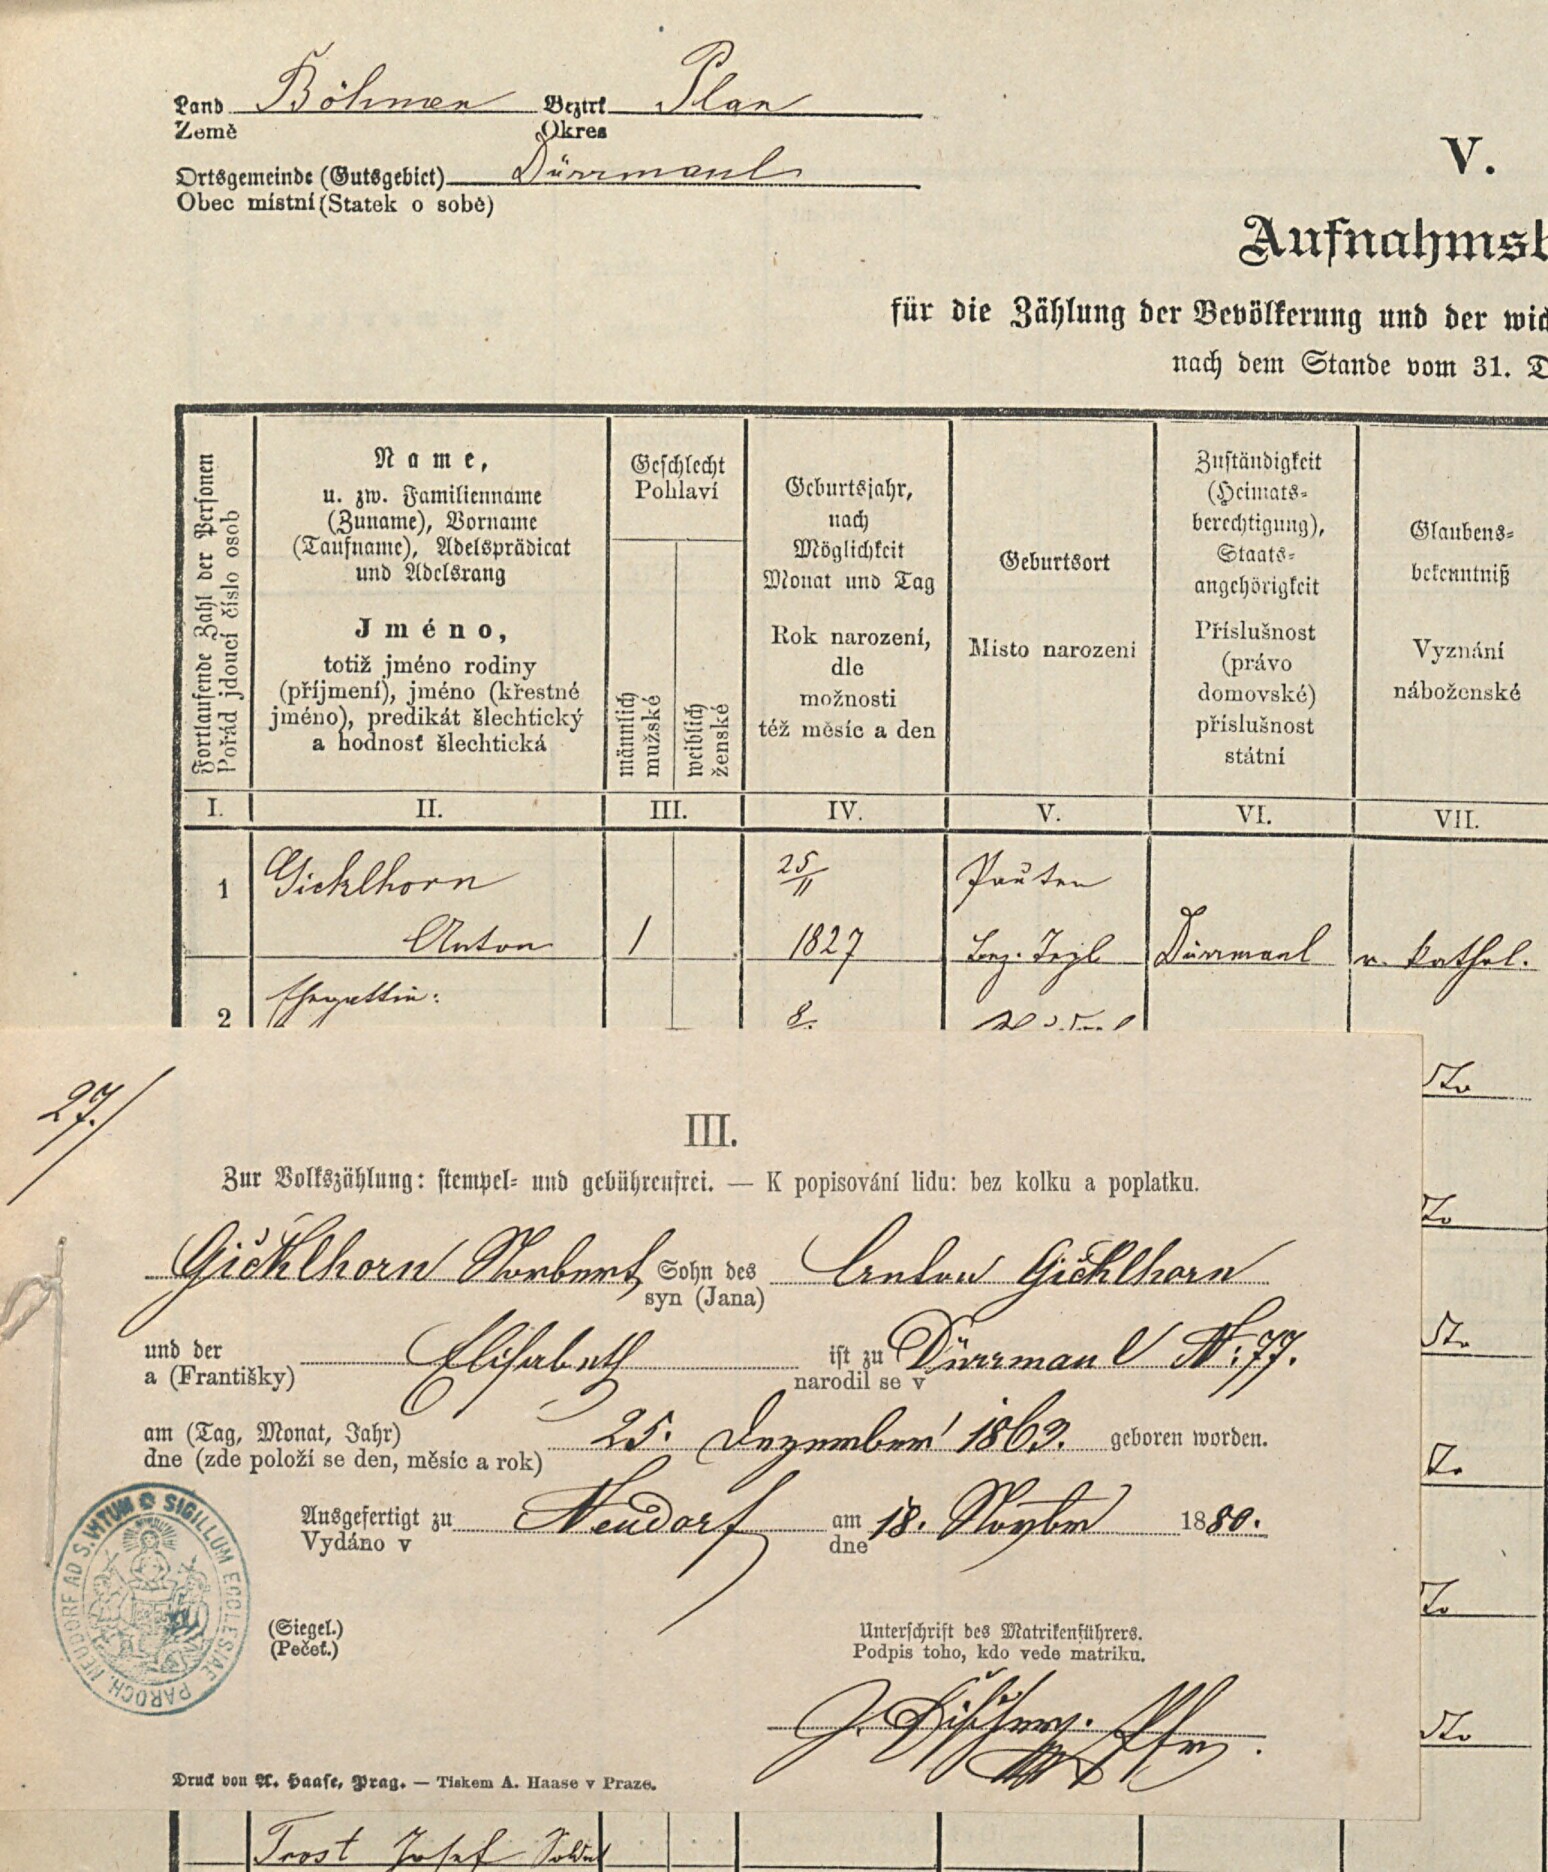 Land Böhmen Bezirk Plan
Země Okres
Ortsgemeinde (Gutsgebiet) Dürrmaul
Obec místní (Statek o sobě)
V.
Aufnahmsb
für die Zählung der Bevölkerung und der wich
nach dem Stande vom 31. D
Fortlaufende Zahl der Personen
Pořád jdoucí číslo osob
Name,
u. zw. Familienname
(Zuname), Vorname
(Taufname), Adelsprädicat
und Adelsrang
Jméno,
totiž jméno rodiny
(příjmení), jméno (křestné
jméno), predikát šlechtický
a hodnosť šlechtická
Geschlecht
Pohlaví
männlich
mužské
weiblich
ženské
Geburtsjahr,
nach
Möglichkeit
Monat und Tag
Rok narození,
dle
možnosti
též měsíc a den
Geburtsort
Místo narození
Zuständigkeit
(Heimats-
berechtigung),
Staats-
angehörigkeit
Příslušnost
(právo
domovské)
příslušnost
státní
Glaubens-
bekenntniß
Vyznání
náboženské
I. II. III. IV. V. VI. VII.
1 Gicklhorn 25/11 Pauten
Anton 1 1827 Bez. Tepl Dürrmaul r. kathol.
Ehegattin:
2 8.
27./
III.
Zur Volkszählung: stempel- und gebührenfrei. — K popisování lidu: bez kolku a poplatku.
Gicklhorn Norbert Sohn des Anton Gicklhorn
syn (Jana)
und der Elisabeth ist zu Dürrmaul N: 77.
a (Františky) narodil se v
am (Tag, Monat, Jahr) 25. Dezember 1863. geboren worden.
dne (zde položí se den, měsíc a rok)
Ausgefertigt zu Neudorf am 18. Novbr 1880.
Vydáno v dne
SIGILLUM ECCLESIAE PAROCH. NEUDORF AD S.
(Siegel.)
(Pečeť.)
Unterschrift des Matrikenführers.
Podpis toho, kdo vede matriku.
Pfr.
Druck von A. Haase, Prag. — Tiskem A. Haase v Praze.
Trost Josef